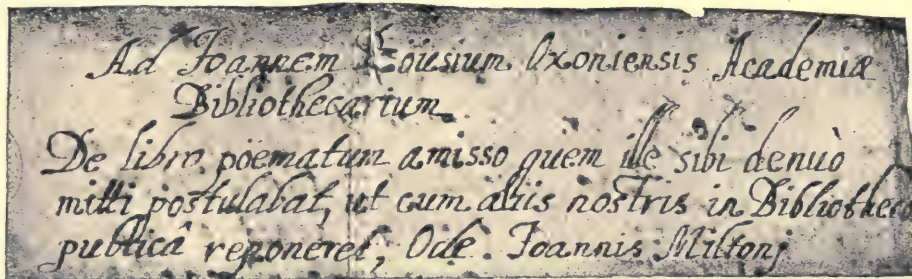 Ad Joannem Roüsium Oxoniensis Academiæ
Bibliothecarium
De libro poematum amisso quem ille sibi denuò
mitti postulabat, ut cum aliis nostris in Bibliotheca
publicâ reponeret, Ode. Joannis Miltonj